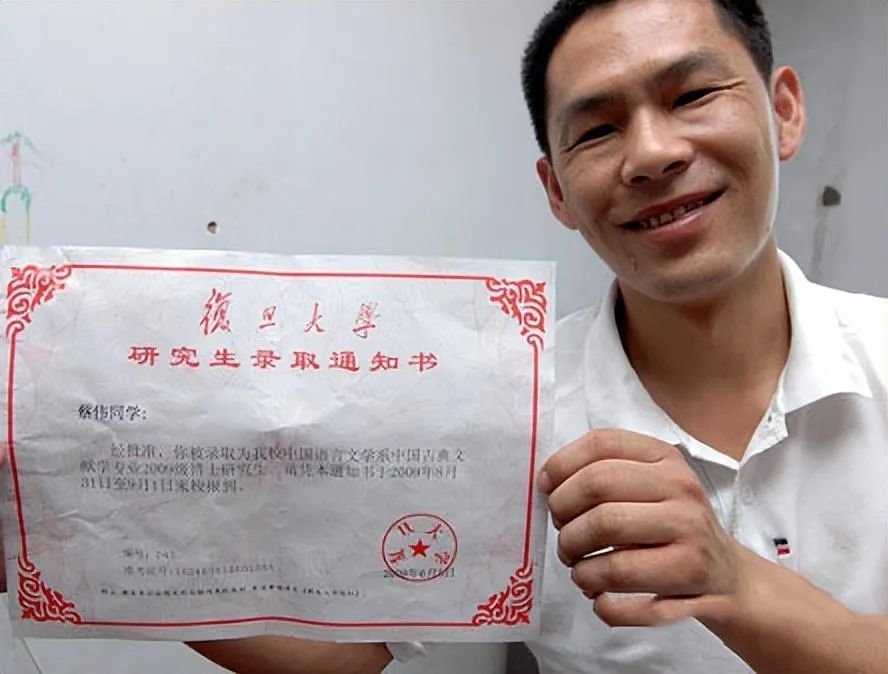 復旦大學
研究生录取通知书
蔡伟同学:
经批准，你被录取为我校中国语言文学系中国古典文
献学专业2009级博士研究生，请凭本通知书于2009年8月
31日至9月1日来校报到。
编号:
准考证号:
复旦大学
2009年6月